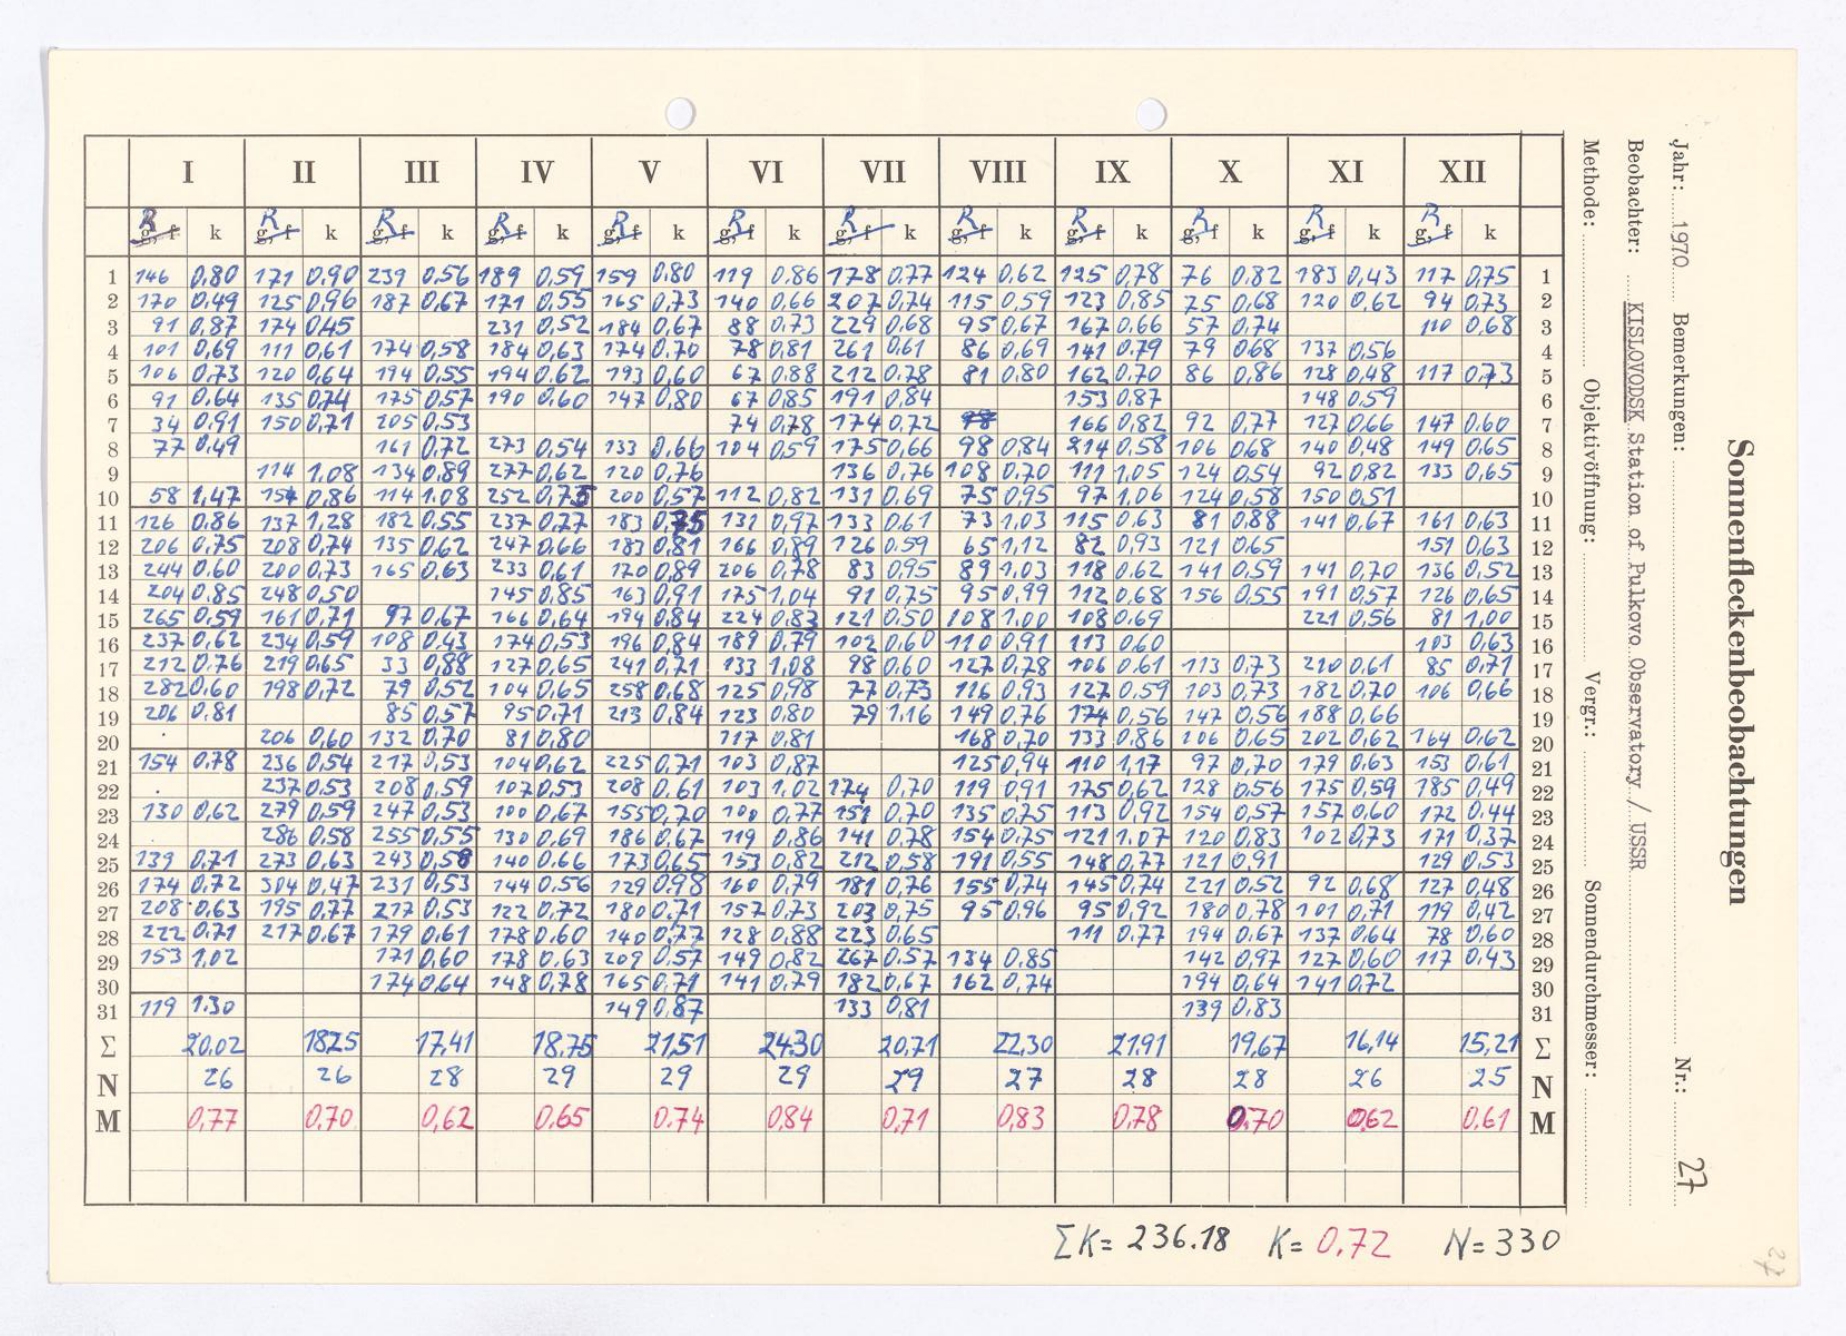 Sonnenfleckenbeobachtungen
Jahr: 1970 Bemerkungen: Nr.: 27
Beobachter: KISLOVODSK Station of Pulkovo Observatory / USSR
Methode: Objektivöffnung: Vergr.: Sonnendurchmesser:
I II III IV V VI VII VIII IX X XI XII
R g, f k R g, f k R g, f k R g, f k R g, f k R g, f k R g, f k R g, f k R g, f k R g, f k R g, f k R g, f k
1 146 0,80 171 0,90 239 0,56 189 0,59 159 0,80 119 0,86 178 0,77 124 0,62 125 0,78 76 0,82 183 0,43 117 0,75 1
2 170 0,49 125 0,96 187 0,67 171 0,55 165 0,73 140 0,66 207 0,74 115 0,59 123 0,85 75 0,68 120 0,62 94 0,73 2
3 91 0,87 174 0,45 231 0,52 184 0,67 88 0,73 229 0,68 95 0,67 167 0,66 57 0,74 110 0,68 3
4 101 0,69 111 0,61 174 0,58 184 0,63 174 0.70 78 0,81 261 0,61 86 0,69 141 0.79 79 0,68 137 0,56 4
5 106 0,73 120 0,64 194 0,55 194 0,62 193 0,60 67 0,88 212 0,78 81 0,80 162 0,70 86 0,86 128 0,48 117 0,73 5
6 91 0,64 135 0,74 175 0,57 190 0,60 147 0,80 67 0,85 191 0,84 153 0,87 148 0,59 6
7 34 0,91 150 0,71 205 0,53 74 0,78 174 0,72 98 166 0,82 92 0,77 127 0,66 147 0.60 7
8 77 0,49 161 0,72 273 0,54 133 0,66 104 0,59 175 0,66 98 0,84 214 0,58 106 0,68 140 0,48 149 0,65 8
9 114 1,08 134 0,89 277 0,62 120 0,76 136 0,76 108 0,70 111 1,05 124 0,54 92 0,82 133 0,65 9
10 58 1,47 154 0,86 114 1.08 252 0,75 200 0,57 112 0,82 131 0,69 75 0,95 97 1,06 124 0,58 150 0,51 10
11 126 0,86 137 1,28 182 0,55 237 0,77 183 0,75 131 0,97 133 0,61 73 1,03 115 0,63 81 0,88 141 0,67 161 0,63 11
12 206 0,75 208 0,74 135 0,62 247 0,66 183 0,81 166 0,89 126 0.59 65 1,12 82 0,93 121 0,65 151 0,63 12
13 244 0,60 200 0,73 165 0,63 233 0,61 170 0,89 206 0,78 83 0,95 89 1,03 118 0.62 141 0,59 141 0,70 136 0,52 13
14 204 0,85 248 0,50 145 0,85 163 0,91 175 1,04 91 0,75 95 0,99 112 0,68 156 0,55 191 0,57 126 0,65 14
15 265 0,59 161 0,71 97 0,67 166 0,64 194 0,84 224 0,83 121 0,50 108 1,00 108 0,69 221 0,56 81 1,00 15
16 237 0,62 234 0,59 108 0,43 174 0,53 196 0,84 189 0,79 102 0,60 110 0,91 113 0.60 103 0,63 16
17 212 0,76 219 0,65 33 0,88 127 0,65 241 0,71 133 1,08 98 0,60 127 0,78 106 0.61 113 0,73 210 0,61 85 0,71 17
18 282 0,60 198 0,72 79 0,52 104 0,65 258 0,68 125 0,98 77 0,73 116 0,93 127 0,59 103 0,73 182 0,70 106 0,66 18
19 206 0,81 85 0,57 95 0,71 213 0,84 123 0,80 79 1,16 149 0,76 174 0,56 147 0,56 188 0,66 19
20 206 0,60 132 0,70 81 0,80 117 0,81 168 0,70 133 0,86 106 0,65 202 0,62 164 0,62 20
21 154 0,78 236 0,54 217 0,53 104 0,62 225 0,71 103 0,87 125 0,94 110 1,17 97 0,70 179 0,63 153 0,61 21
22 237 0,53 208 0,59 107 0,53 208 0,61 103 1,02 174 0,70 119 0,91 175 0,62 128 0,56 175 0,59 185 0,49 22
23 130 0,62 279 0,59 247 0,53 100 0,67 155 0,70 100 0,77 151 0,70 135 0,75 113 0,92 154 0,57 157 0,60 172 0.44 23
24 286 0,58 255 0,55 130 0,69 186 0,67 119 0,86 141 0,78 154 0,75 121 1.07 120 0,83 102 0,73 171 0,37 24
25 139 0,71 273 0,63 243 0,58 140 0.66 173 0,65 153 0,82 212 0,58 191 0,55 148 0,77 121 0,91 129 0,53 25
26 174 0,72 304 0,47 231 0,53 144 0,56 129 0,98 160 0,79 181 0,76 155 0,74 145 0,74 221 0,52 92 0,68 127 0,48 26
27 208 0,63 195 0,77 217 0,53 122 0,72 180 0,71 157 0,73 203 0,75 95 0,96 95 0,92 180 0,78 101 0,71 119 0,42 27
28 222 0,71 217 0,67 179 0,61 178 0.60 140 0,77 128 0,88 223 0,65 111 0.77 194 0,67 137 0,64 78 0,60 28
29 153 1,02 171 0,60 178 0,63 209 0,57 149 0,82 267 0,57 134 0,85 142 0,97 127 0,60 117 0,43 29
30 174 0,64 148 0,78 165 0,71 141 0,79 182 0,67 162 0,74 194 0,64 141 0,72 30
31 119 1.30 149 0,87 133 0,81 139 0,83 31
Σ 20.02 18.25 17,41 18,75 21,51 24.30 20,71 22,30 21.91 19,67 16,14 15,21 Σ
N 26 26 28 29 29 29 29 27 28 28 26 25 N
M 0,77 0.70 0,62 0.65 0.74 0,84 0,71 0,83 0,78 0.70 0,62 0.61 M
ΣK = 236.18 K = 0.72 N = 330
27